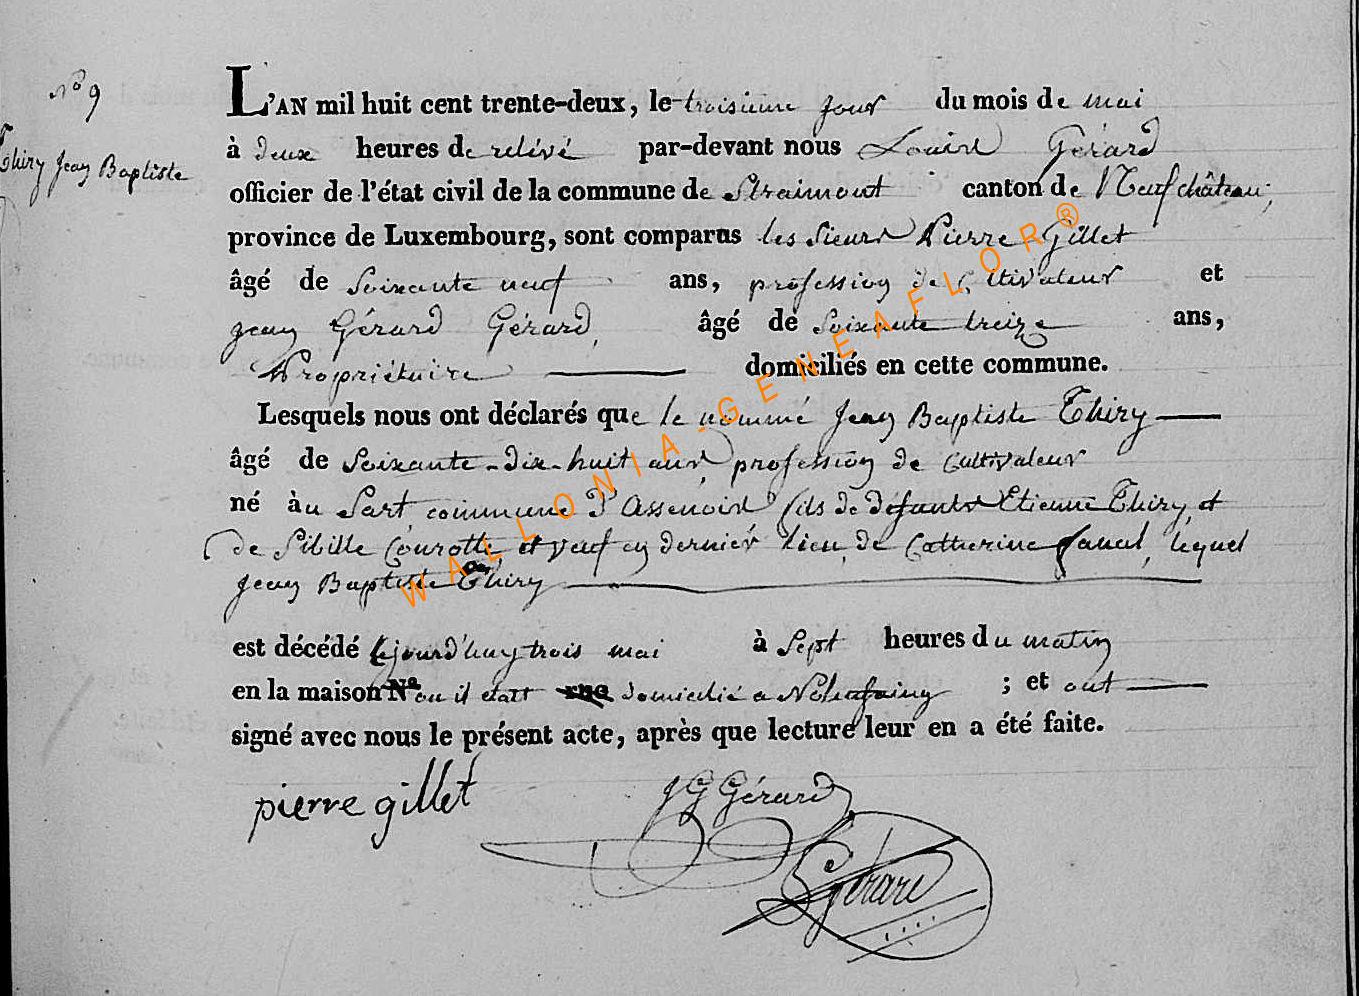 Nº 9
Thiry Jean Baptiste
L'AN mil huit cent trente-deux, le troisieme jour du mois de mai
à deux heures de relévé par-devant nous Louis Gérard
officier de l'état civil de la commune de Straimont canton de Neufchâteau,
province de Luxembourg, sont comparus les sieurs Pierre Gillet
âgé de Soixante neuf ans, profession de Cultivateur et
jean Gérard Gérard, âgé de Soixante treize ans,
Propriétaire domiciliés en cette commune.
Lesquels nous ont déclarés que le nommé Jean Baptiste Thiry
âgé de Soixante-dix-huit ans profession de Cultivateur
né à u Sart commune d'Assenois fils de défunts Etienne Thiry et
de Sibille et veuf en dernier lieu de Catherine lequel
Jean Baptiste Thiry
est décédé cejourd'huy trois mai à Sept heures du matin
en la maison Nº ou il etait rue domicilié a ; et ont
signé avec nous le présent acte, après que lecture leur en a été faite.
pierre gillet
JG Gérard
L Gérard
WALLONIA-GENEAFLOR®